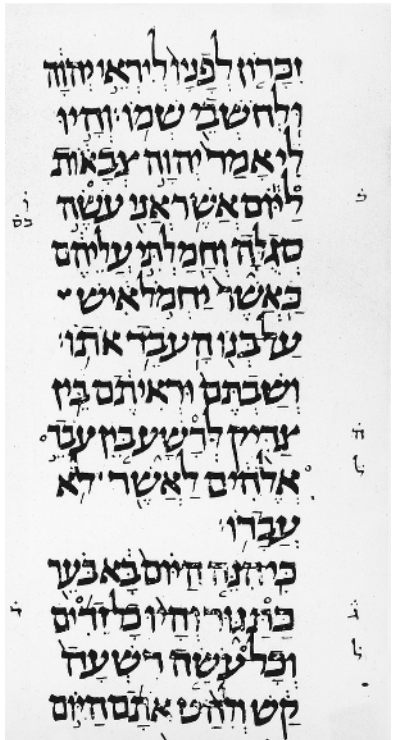 זִכָּרוֹן לְפָנָיו לְיִרְאֵי יְהוָה
וּלְחֹשְׁבֵי שְׁמוֹ׃ וְהָיוּ
לִי אָמַר יְהוָה צְבָאוֹת
לַיּוֹם אֲשֶׁר אֲנִי עֹשֶׂה
סְגֻלָּה וְחָמַלְתִּי עֲלֵיהֶם
כַּאֲשֶׁר יַחְמֹל אִישׁ
עַל בְּנוֹ הָעֹבֵד אֹתוֹ׃
וְשַׁבְתֶּם וּרְאִיתֶם בֵּין
צַדִּיק לְרָשָׁע בֵּין עֹבֵד
אֱלֹהִים לַאֲשֶׁר לֹא
עֲבָדוֹ׃
כִּי הִנֵּה הַיּוֹם בָּא בֹּעֵר
כַּתַּנּוּר וְהָיוּ כָל זֵדִים
וְכָל עֹשֵׂה רִשְׁעָה
קַשׁ וְלִהַט אֹתָם הַיּוֹם